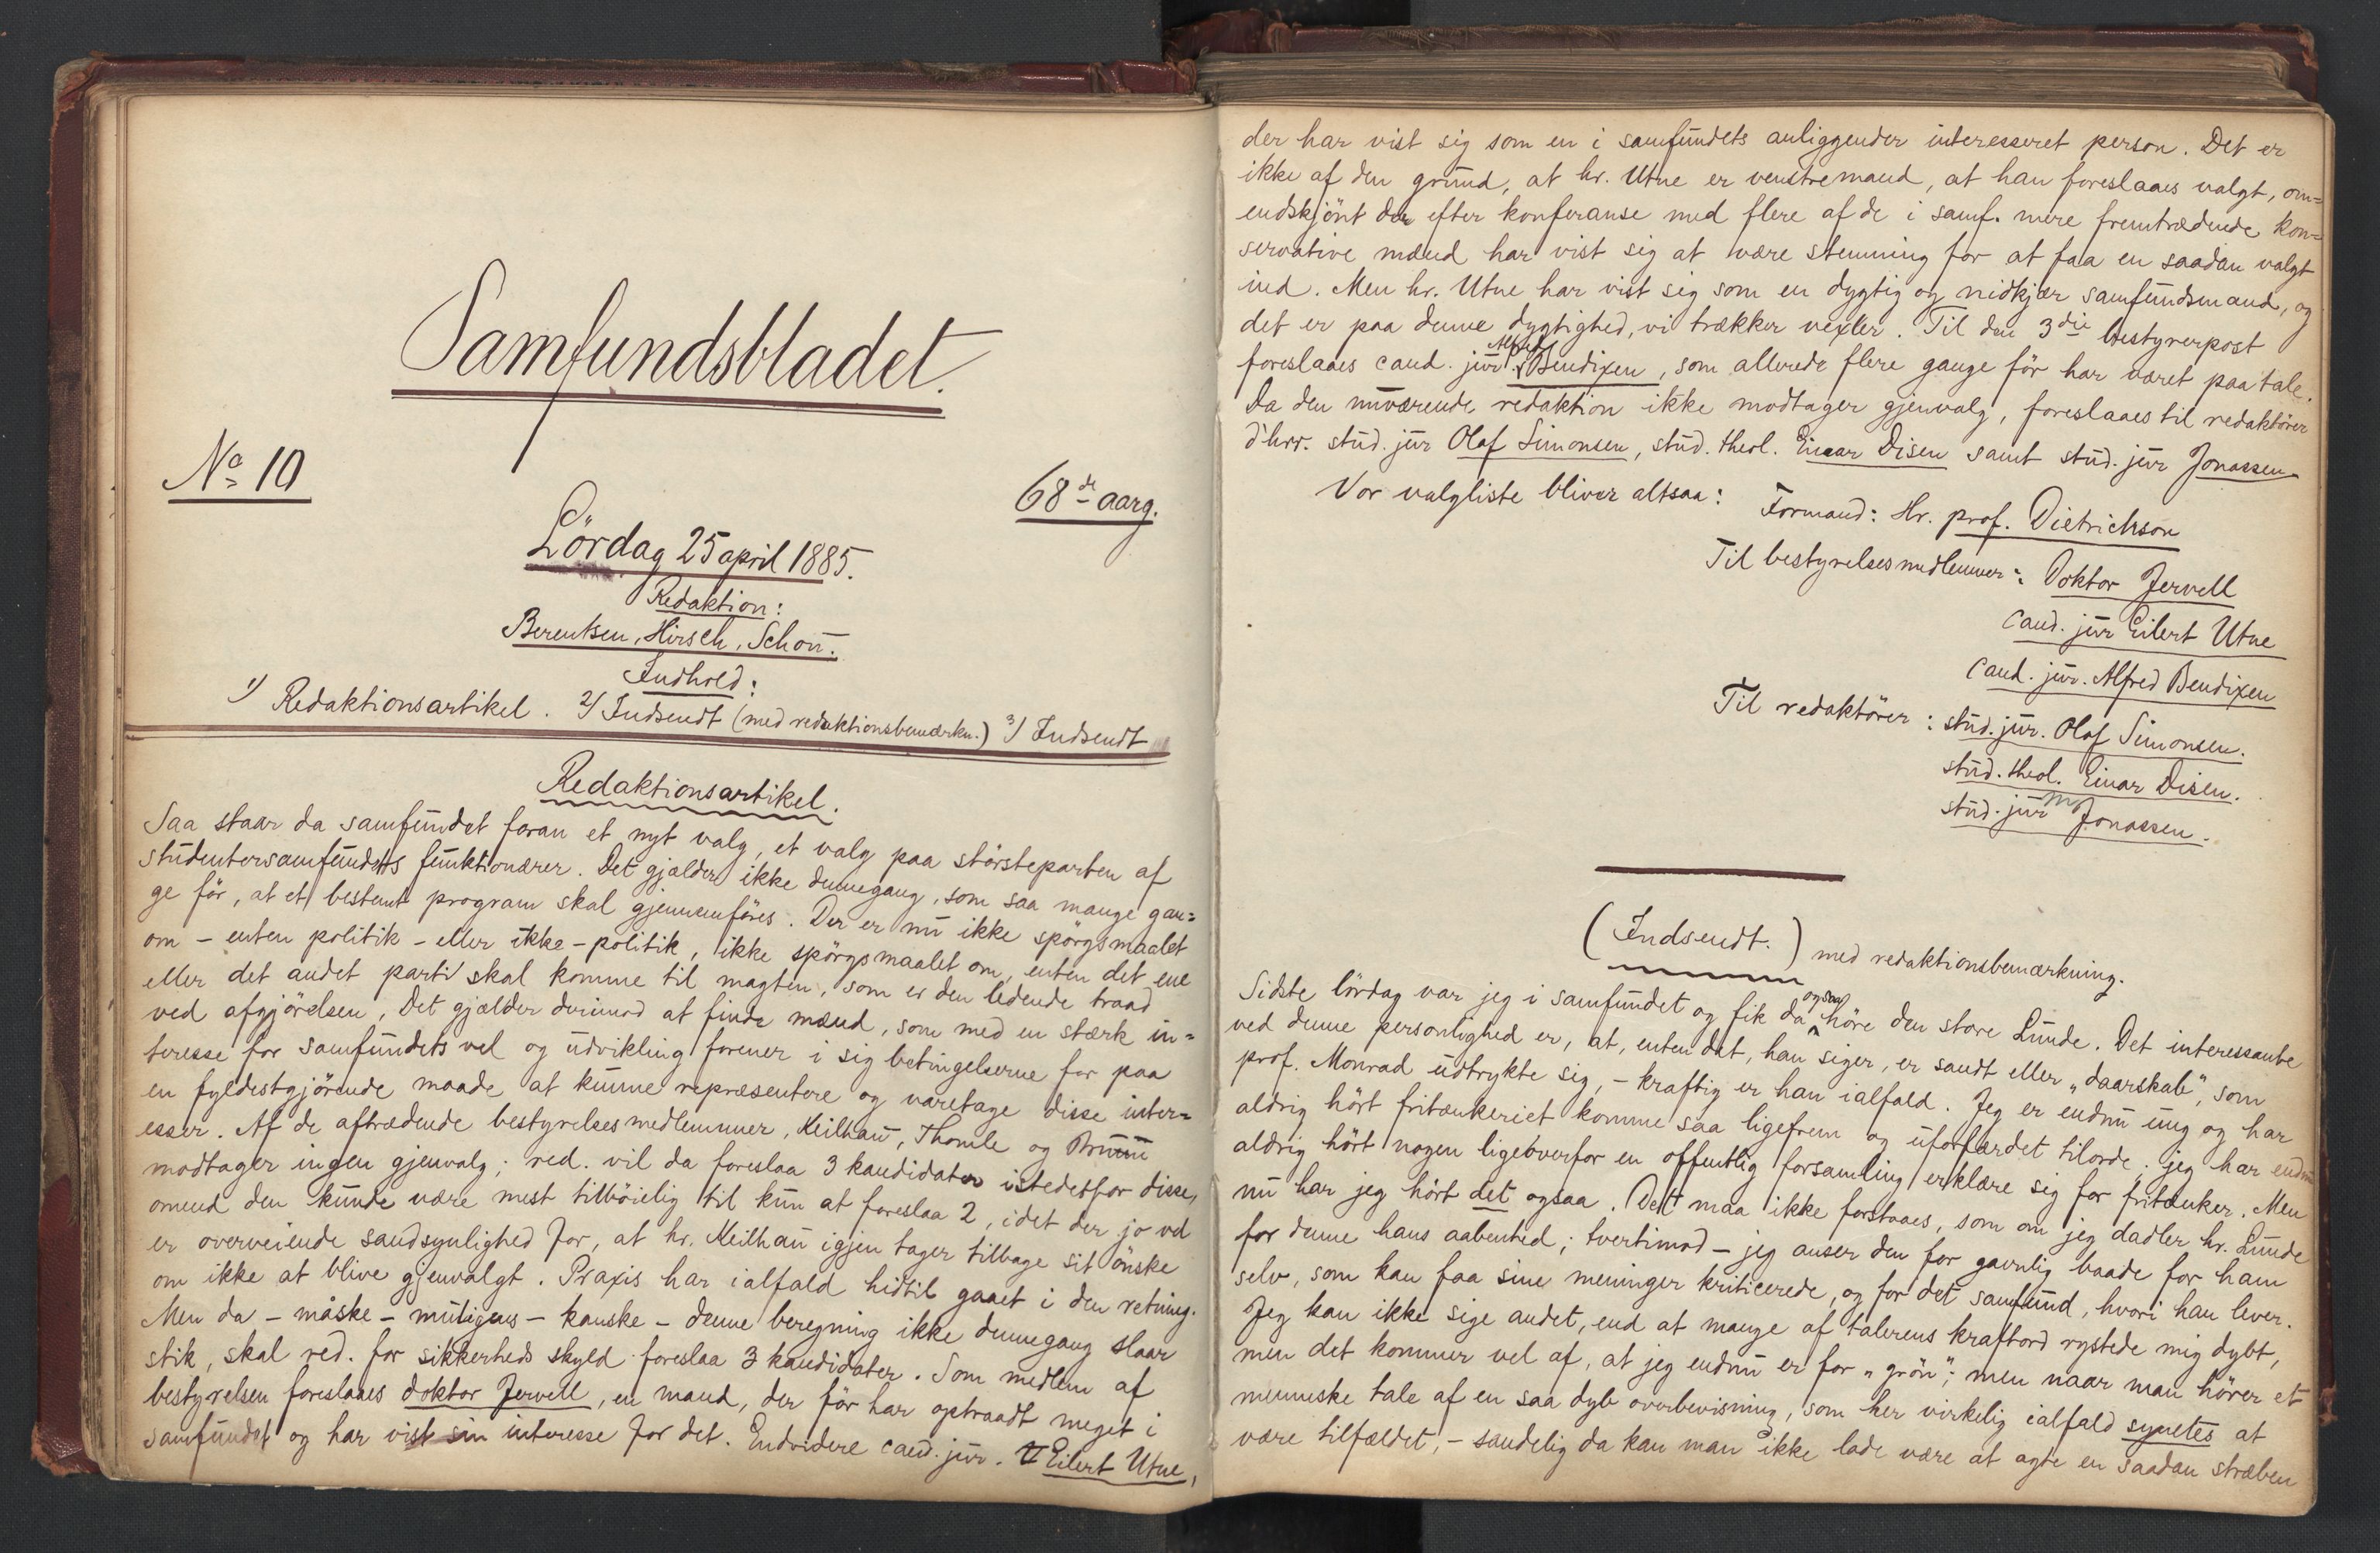 Samfundsbladet.
No 10
68de aarg.
Lördag 25 april 1885.
Redaktion:
Berentsen, Hirsch, Schou.
Indhold:
1) Redaktionsartikel. 2) Indsendt (med redaktionsbemærkn.) 3) Indsendt
Redaktionsartikel.
Saa staar da samfundet foran et nyt valg, et valg paa störsteparten af
studentersamfundets funktionærer. Det gjælder ikke dennegang, som saa mange gan=
ge för, at et bestemt program skal gjennemföres. Der er nu ikke spörgsmaalet
om – enten politik – eller ikke – politik, ikke spörgsmaalet om, enten det ene
eller det andet parti skal komme til magten, som er den ledende traad
ved afgjörelsen. Det gjælder derimod at finde mænd, som med en stærk in=
teresse for samfundets vel og udvikling forener i sig betingelserne for paa
en fyldestgjörende maade at kunne repræsentere og varetage disse inter=
esser. Af de aftrædende bestyrelsesmedlemmer, Keilhau, Thomle og Bruun
modtager ingen gjenvalg; red. vil da foreslaa 3 kandidater istedetfor disse,
omend den kunde være mest tilböielig til kun at foreslaa 2, idet der jo vel
er overveiende sandsynlighed for, at hr. Keilhau igjen tager tilbage sit önske
om ikke at blive gjenvalgt. Praxis har ialfald hidtil gaaet i den retning.
Men da – måske – muligens – kanske – denne beregning ikke dennegang slaar
stik, skal red. for sikkerheds skyld foreslaa 3 kandidater. Som medlem af
bestyrelsen foreslaaes doktor Jervell, en mand, der för har optraadt meget i
samfundet og har vist sin interesse for det. Endvidere cand. jur. Eilert Utne,
der har vist sig som en i samfundets anliggender interesseret person. Det er
ikke af den grund, at hr. Utne er venstremand, at han foreslaaes valgt, om=
endskjönt der efter konferanse med flere af de i samf. mere fremtrædende kon=
servative mænd har vist sig at være stemning for at faa en saadan valgt
ind. Men hr. Utne har vist sig som en dygtig og nidkjær samfundsmand, og
det er paa denne dygtighed, vi trækker vexler. Til den 3die bestyrerpost
foreslaaes cand. jur. Alfred Bendixen, som allerede flere gange för har været paa tale.
Da den nuværende redaktion ikke modtager gjenvalg, foreslaaes til redaktörer
d'hrr. stud. jur Olaf Simonsen, stud. theol. Einar Disen samt stud. jur Jonassen
Vor valgliste bliver altsaa: Formand: Hr. prof. Dietrichson
Til bestyrelsesmedlemmer: Doktor Jervell
Cand. jur Eilert Utne
Cand. jur. Alfred Bendixen
Til redaktörer: stud. jur. Olaf Simonsen.
stud. theol. Einar Disen.
stud. jur M Jonassen.
(Indsendt.) med redaktionsbemærkning.
Sidste lördag var jeg i samfundet og fik da ogsaa höre den store Lunde. Det interessante
ved denne personlighed er, at, enten det, han siger, er sandt eller „daarskab", som
prof. Monrad udtrykte sig, – kraftig er han ialfald. Jeg er endnu ung og har
aldrig hört fritænkeriet komme saa ligefrem og uforfærdet tilorde; jeg har endnu
aldrig hört nogen ligeoverfor en offentlig forsamling erklære sig for fritænker. Men
nu har jeg hört det ogsaa. Dett maa ikke forstaaes, som om jeg dadler hr. Lunde
for denne hans aabenhed; tvertimod – jeg anser den for gavnlig baade for ham
selv, som kan faa sine meninger kriticerede, og for det samfund, hvori han lever.
Jeg kan ikke sige andet, end at mange af talerens kraftord rystede mig dybt,
men det kommer vel af, at jeg endnu er for „grön"; men naar man hörer et
menneske tale af en saa dyb overbevisning, som her virkelig ialfald synetes at
være tilfældet, – sandelig da kan man ikke lade være at agte en saadan stræben